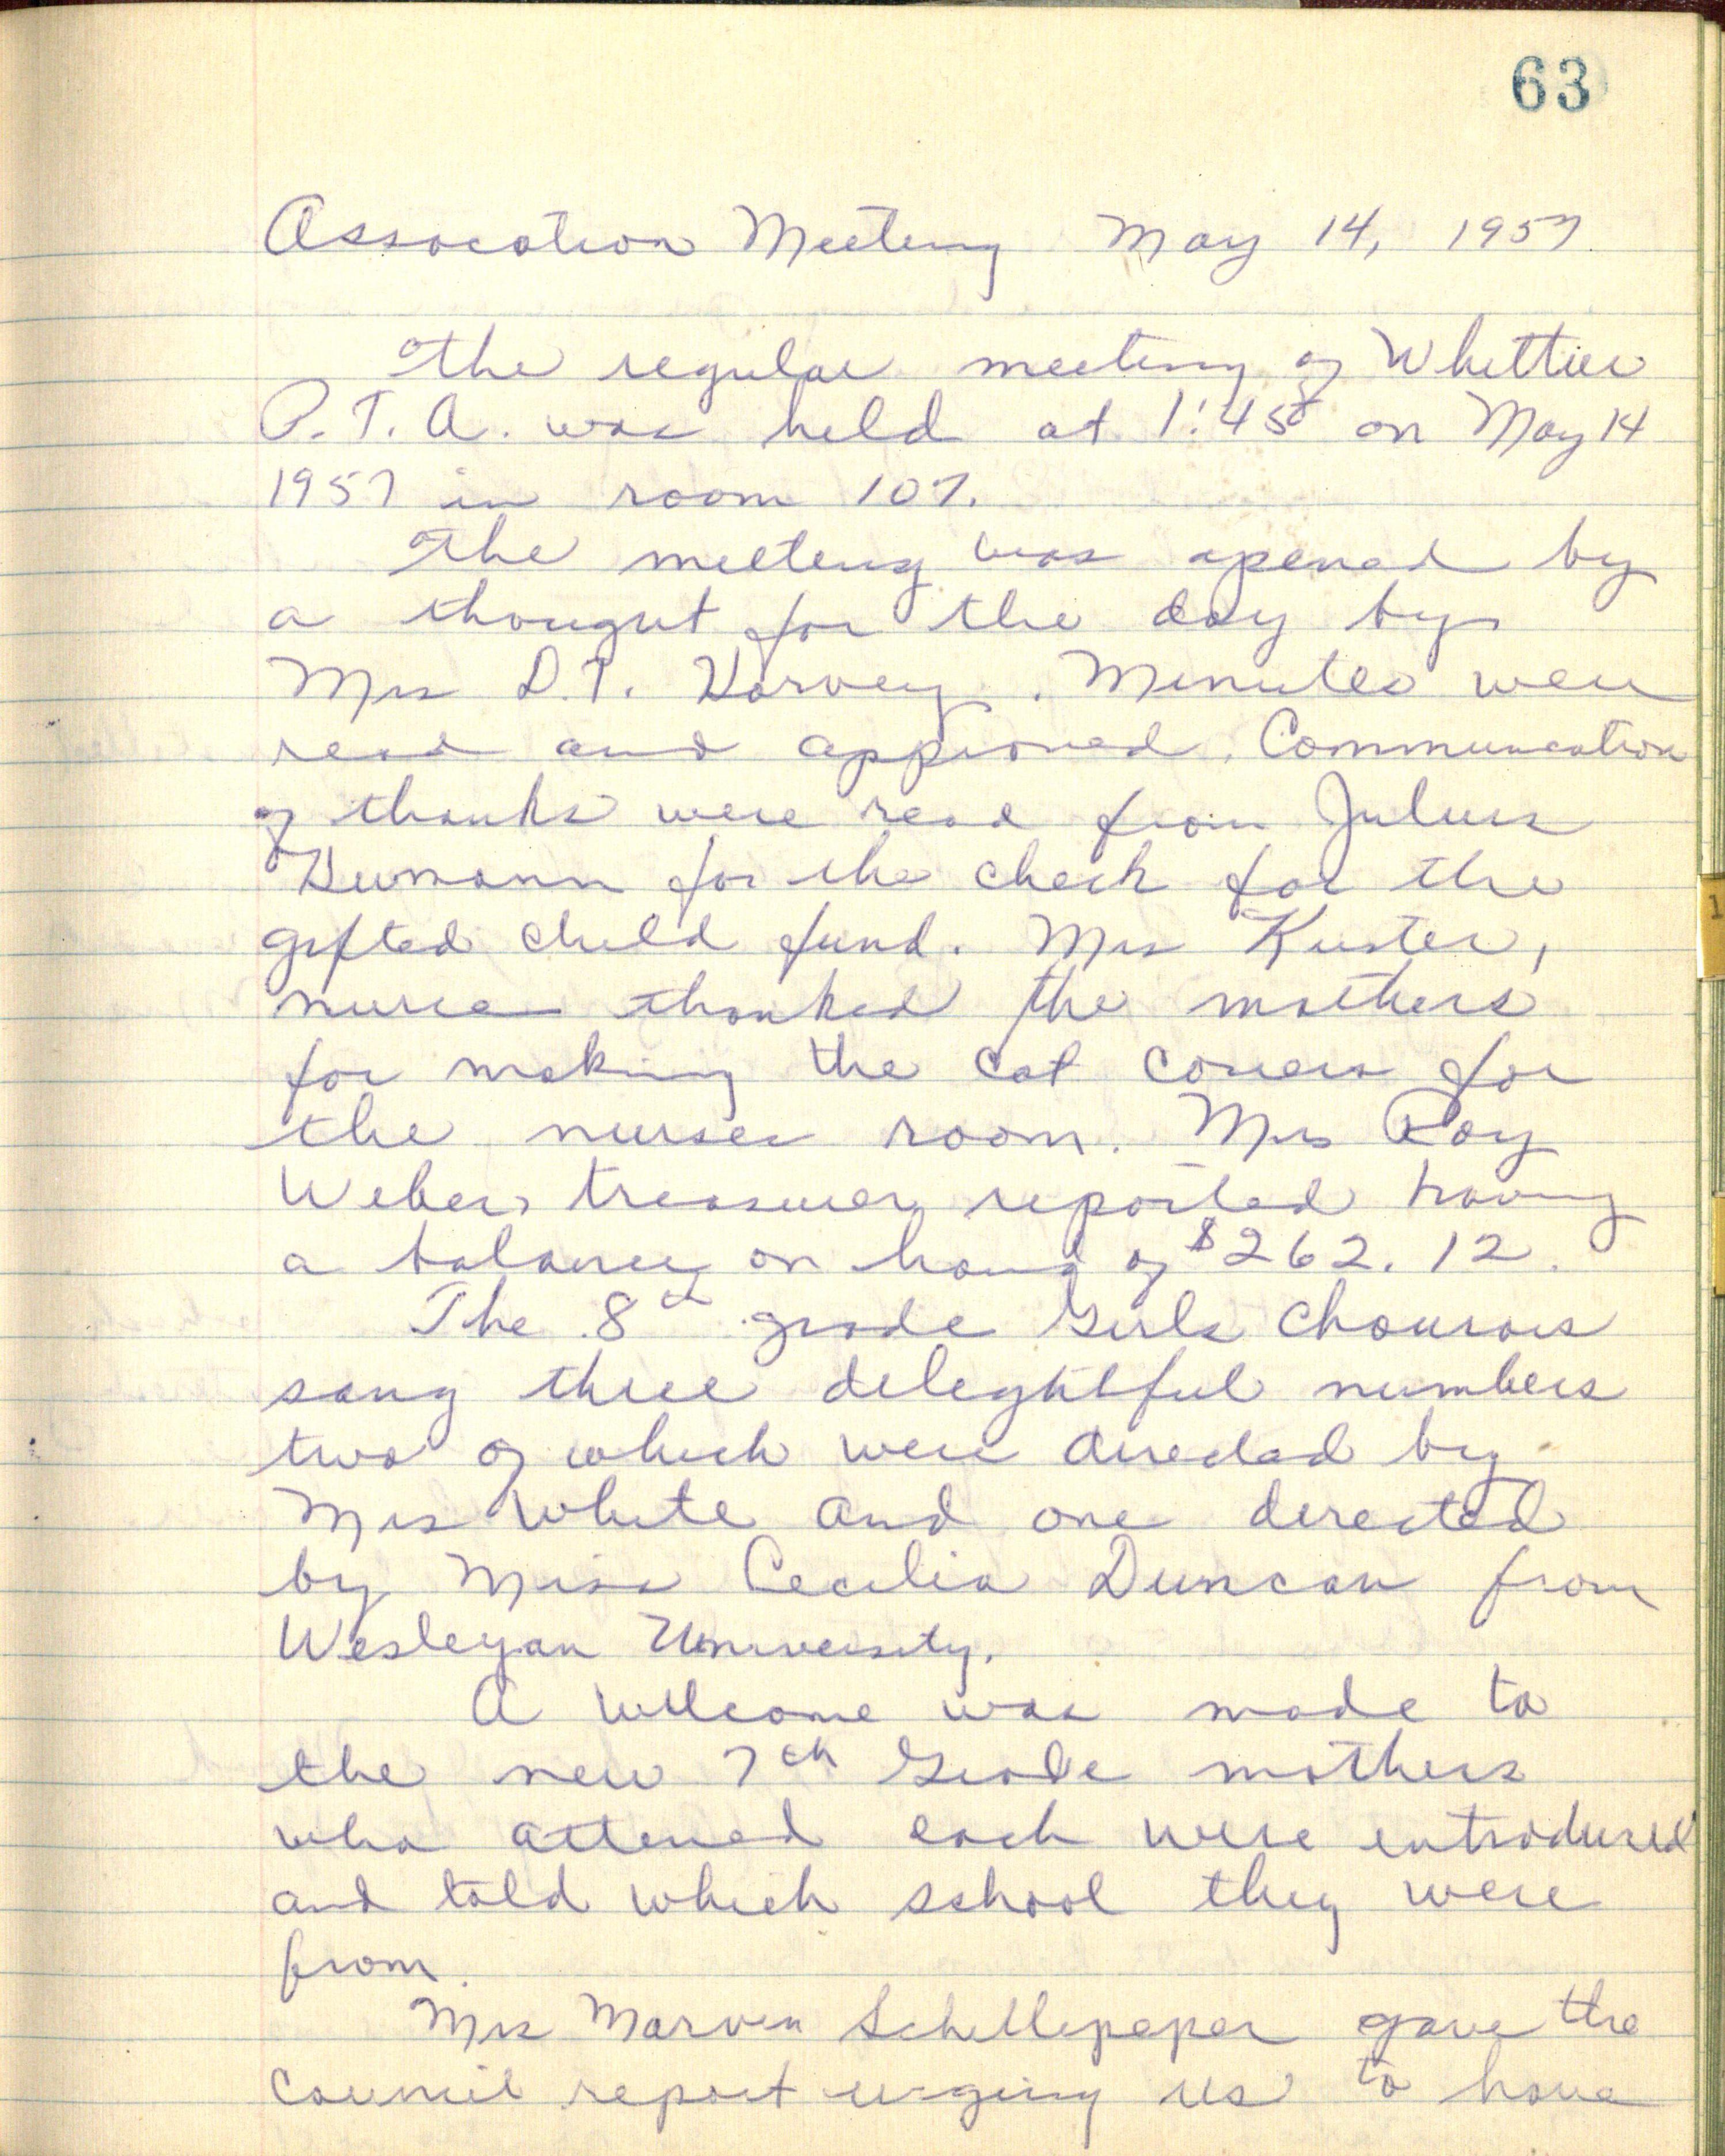 63
Assocation Meeting May 14, 1957
The regular meeting of Whittier
P.T.A. was held at 1:45 on May 14
1957 in room 107.
The meeting was opened by
a thought for the day by
Mrs D.T. Harvey. Minutes were
read and approved. Communication
of thanks were read from Julius
Humann for the check for the
gifted child fund. Mrs Kuster,
nurse thanked the mothers
for making the cot covers for
the nurses room. Mrs Ray
Weber, treasurer, reported having
a balance on hand of $262.12.
The 8th grade Girls Chourus
sang three delightful numbers
two of which were directed by
Mrs White and one directed
by Miss Cecilia Duncan from
Wesleyan University.
A welcome was made to
the new 7th Grade mothers
who attened each were introduced
and told which school they were
from.
Mrs Marvin Schellpeper gave the
council report urging us to have